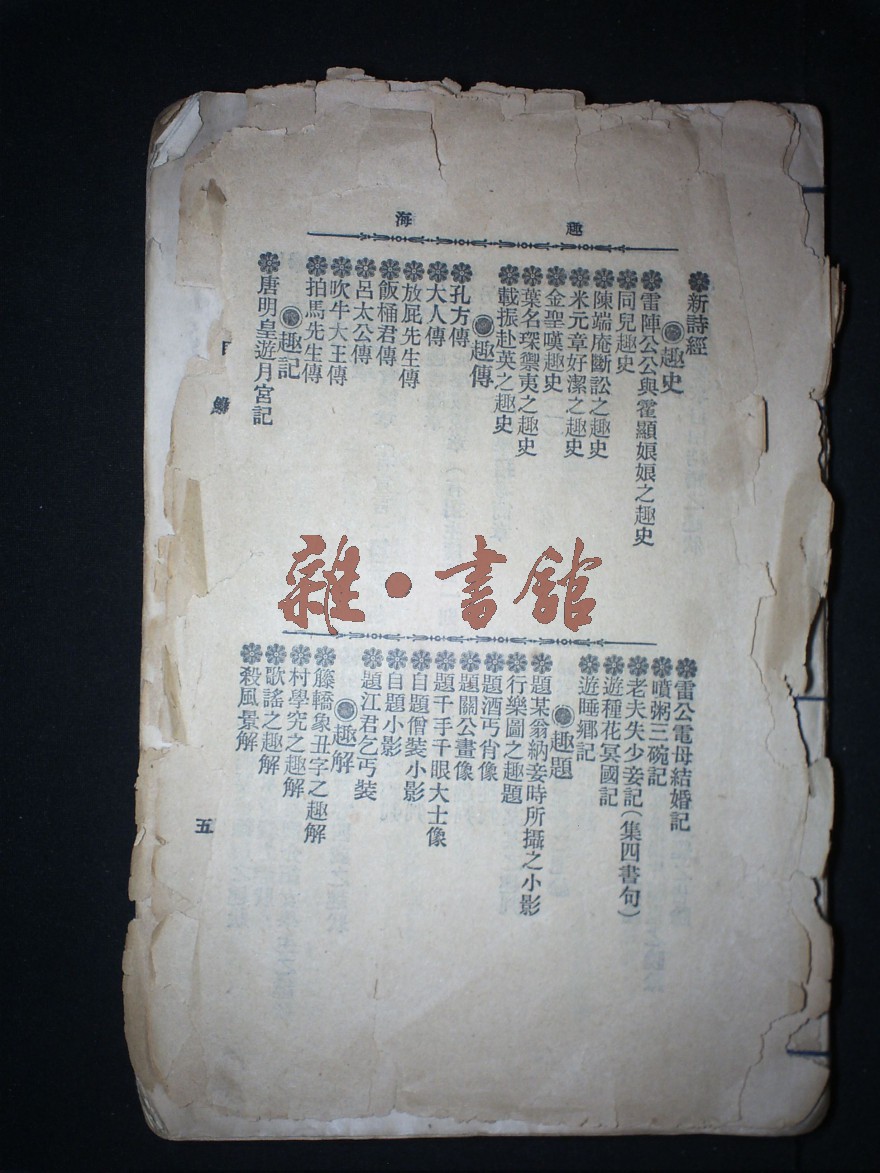 趣海
新詩經
趣史
雷陣公公與霍顯娘娘之趣史
同兒趣史
陳端庵斷訟之趣史
米元章好潔之趣史
金聖嘆趣史
葉名琛禦夷之趣史
載振赴英之趣史
趣傳
孔方傳
大人傳
放屁先生傳
飯桶君傳
呂太公傳
吹牛大王傳
拍馬先生傳
趣記
唐明皇遊月宮記
雷公電母結婚記
噴粥三碗記
老夫失少妾記(集四書句)
遊種花冥國記
遊睡鄉記
趣題
題某翁納妾時所攝之小影
行樂圖之趣題
題酒丐肖像
題關公畫像
題千手千眼大士像
自題僧裝小影
自題小影
題江君乞丐裝
趣解
籐轎象丑字之趣解
村學究之趣解
歌謠之趣解
殺風景解
五
雜·書館